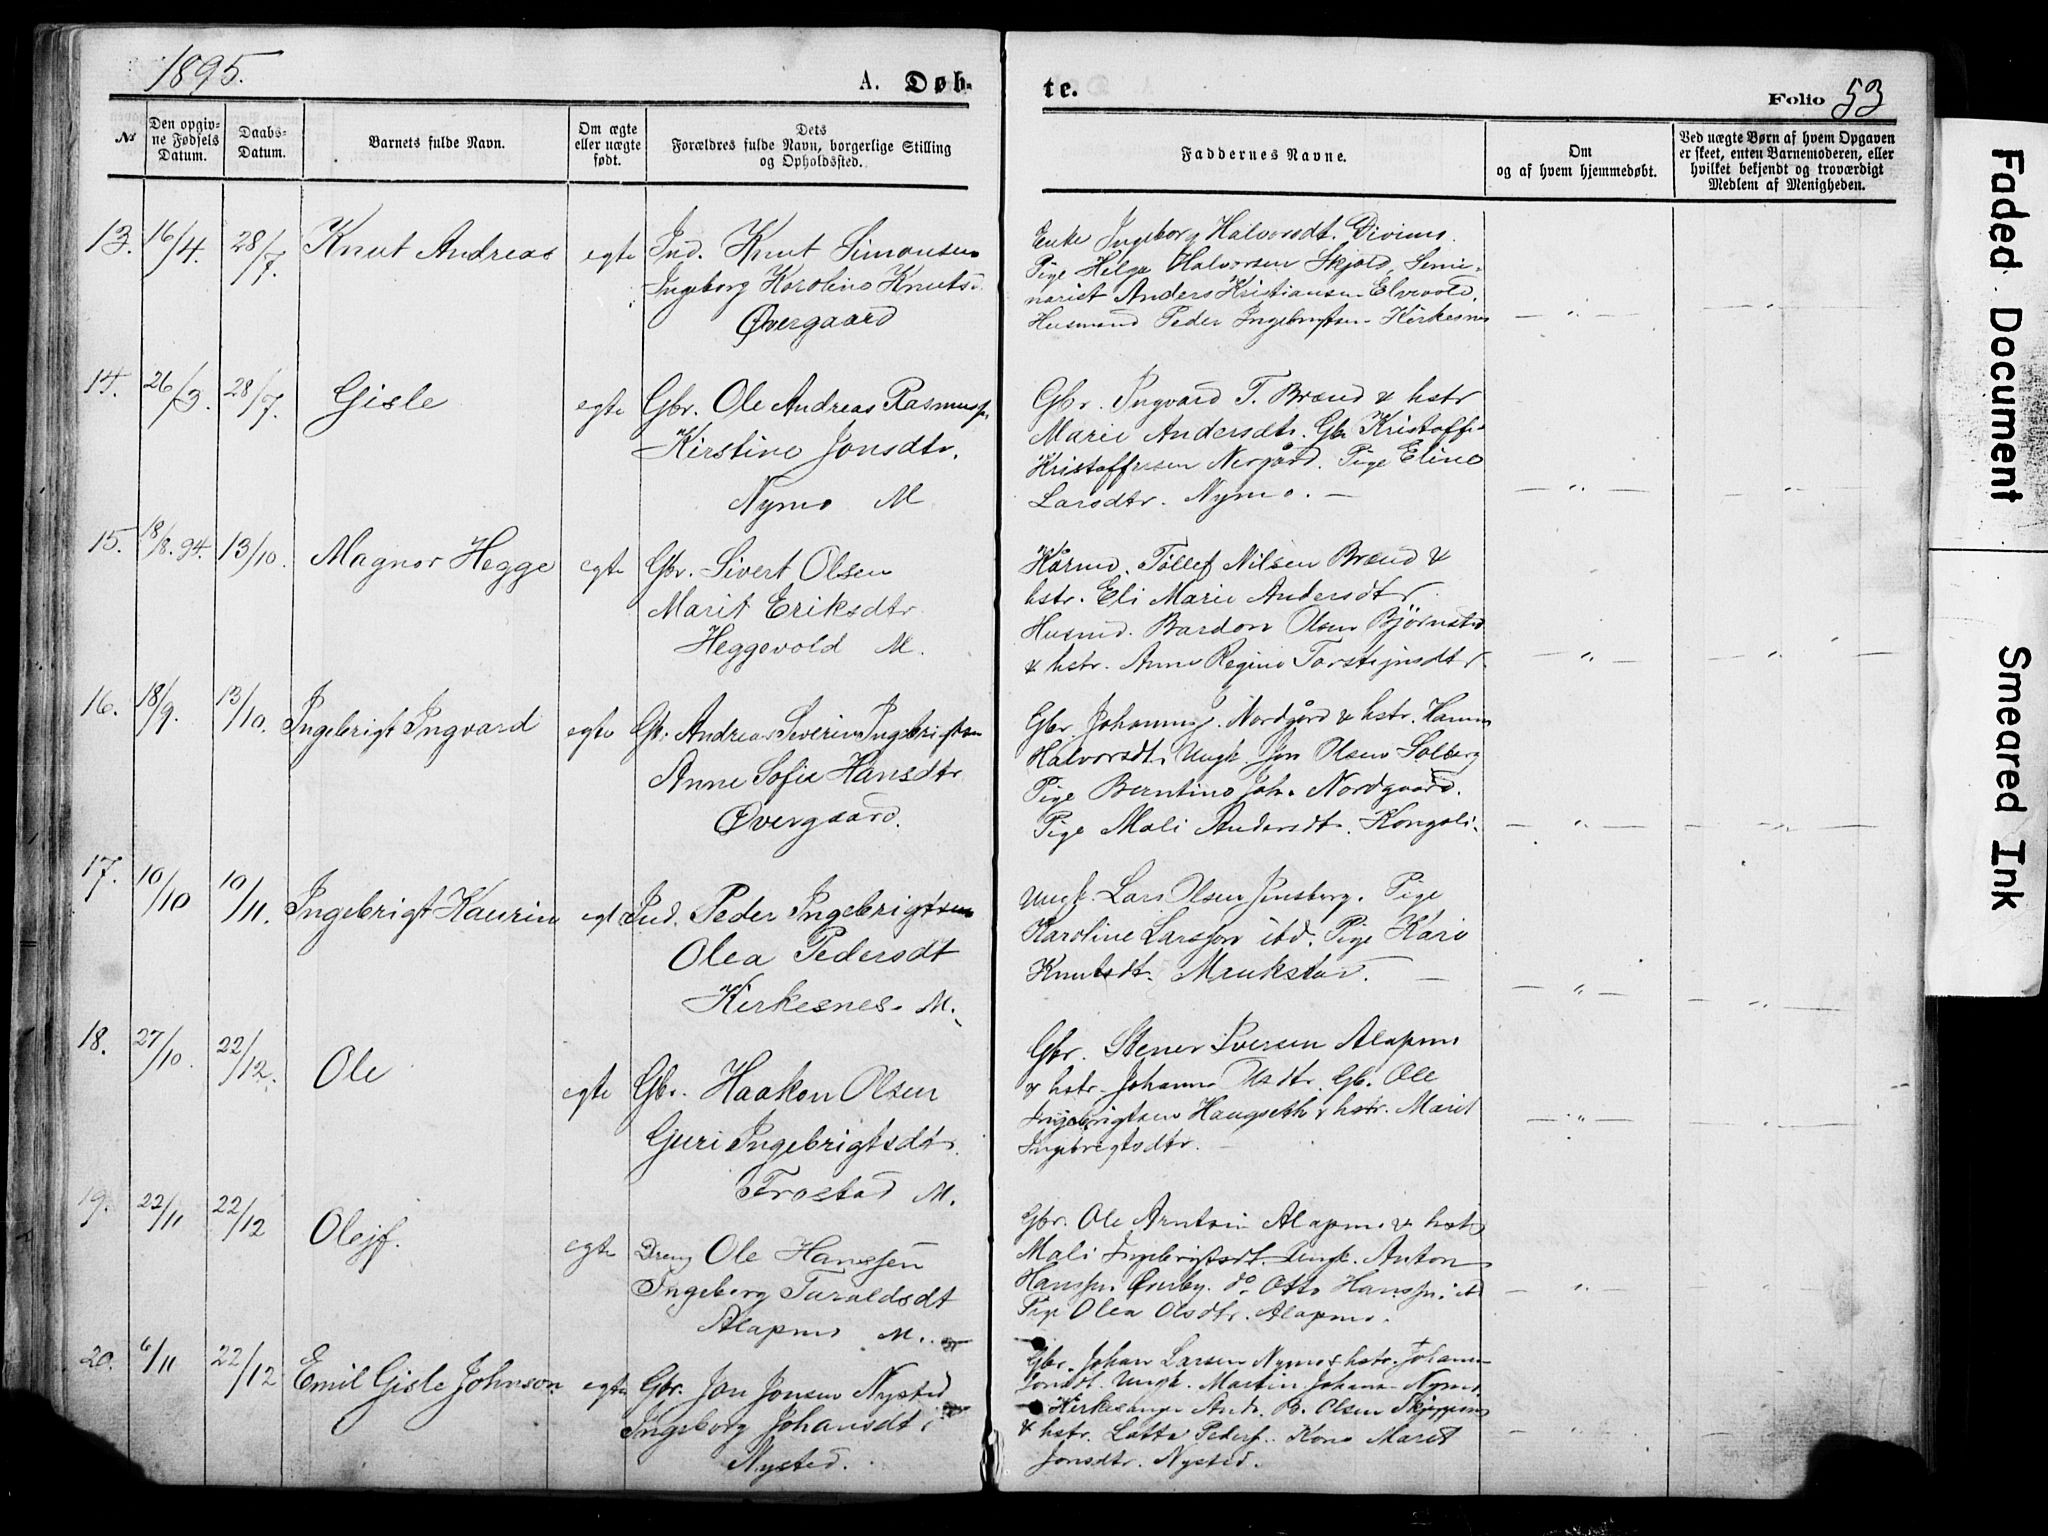 1895.
A. Døb-
te.
Folio 53
№
Den opgiv-
ne Fødsels
Datum.
Daabs-
Datum.
Barnets fulde Navn.
Om ægte
eller uægte
født.
Dets
Forældres fulde Navn, borgerlige Stilling
og Opholdssted.
Faddernes Navne.
Om
og af hvem hjemmedøbt.
Ved uægte Børn af hvem Opgaven
er skeet, enten Barnemoderen, eller
hvilket bekjendt og troværdigt
Medlem af Menigheden.
13. 16/4. 28/7. Knut Andreas egte Ind. Knut Simonsen
Ingeborg Karoline Knuts.
Øvergaard
Enke Ingeborg Halvorsdt. Divimo.
Pige Helga Halvorsen Skjold, Semi-
narist Anders Kristiansen Elvevold.
Husmand Peder Ingebrigtsen Kirkesnes — " —
14. 26/3. 28/7. Gisle egte Gbr. Ole Andreas Rasmuss.
Kirstine Jonsdtr.
Nymo M
Gbr. Ingvard T. Brænd & hstr
Marie Andersdtr. Gbr Kristoffer
Kristoffersen Nergård. Pige Eline
Larsdtr. Nymo. — — " —
15. 18/8. 94. 13/10. Magnor Hegge egte Gbr. Sivert Olsen
Marit Eriksdtr.
Heggevold M.
Kårmd. Tollef Nilsen Brænd &
hstr. Eli Marie Andersdtr
Husmd. Bardon Olsen Bjørnstad
& hstr. Anne Regine Torstejnsdtr. — " —
16. 18/9. 13/10. Ingebrigt Ingvard egte Gbr Andreas Severin Ingebrigtsen
Anne Sofie Hansdtr
Øvergaard.
Gbr. Johannes J. Nordgård & hstr. Hanna
Halvorsdt. Ungk. Jon Olsen Solberg
Pige Berntine Joh. Nordgaard.
Pige Mali Andersdt. Kongsli. — " —
17. 10/10 10/11. Ingebrigt Kaurin egte Ind. Peder Ingebrigtsen
Olea Pedersdt
Kirkesnes M.
Ungk. Lars Olsen Jensberg. Pige
Karoline Larssen ibd. Pige Kari
Knutsdt. Mrukstad. — — " —
18. 27/10. 22/12. Ole egte Gbr. Haakon Olsen
Guri Ingebrigtsdtr.
Frostad M.
Gbr. Stener Iversen Alapmo
& hstr. Johanna Olsdtr. Gb. Ole
Ingebrigtsen Haugseth & hstr. Marit
Ingebrigtsdtr. — " —
19. 22/11 22/12 Olejf. egte Dreng Ole Hanssen
Ingeborg Taraldsdt
Alapmo M.
Gbr. Ole Arntsen Alapmo & hstr
Mali Ingebrigtsdt. Ungk. Anton
Hanssen Øverby. do Otto Hanssen ibd
Pige Olea Olsdtr. Alapmo. — " —
20. 6/11 22/12 Emil Gisle Johnson egte Gbr. Jon Jonsen Nysted
Ingeborg Johansdt
Nysted.
Gbr. Johan Larsen Nymo & hstr. Johanna
Jonsdt. Ungk. Martin Johans. Nymo.
Kirkesanger And. B. Olsen
& hstr. Lotta Peders. Kone Marit
Jonsdtr. Nysted.
Faded Document
Smeared Ink